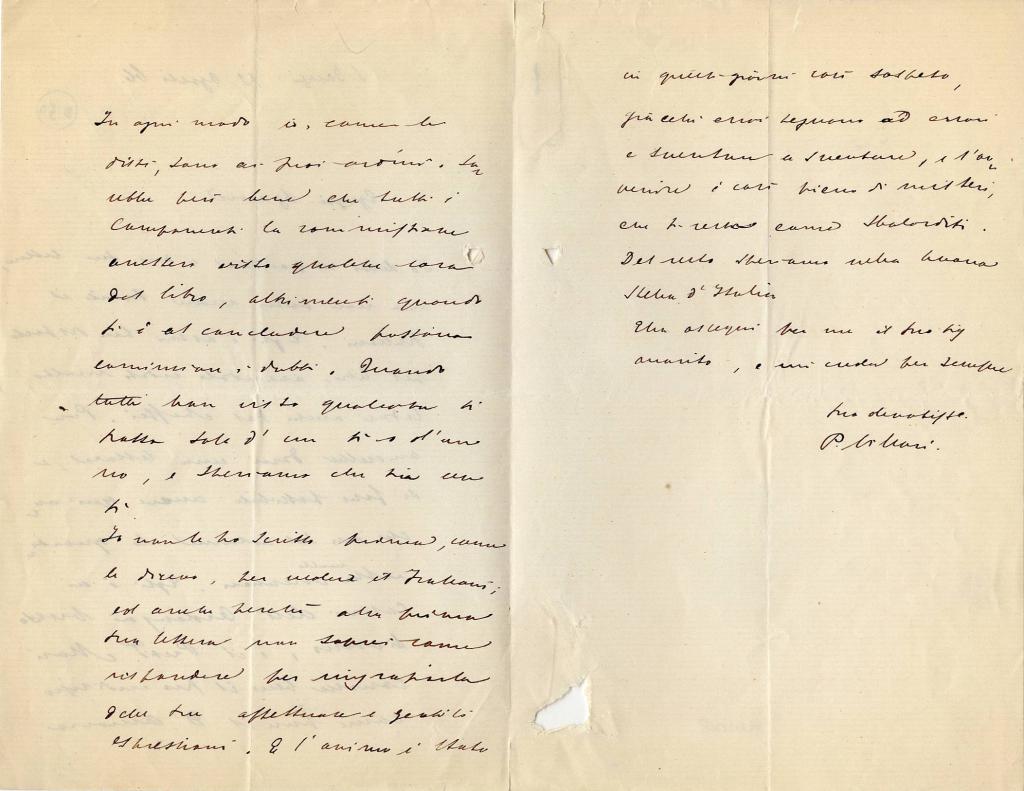 In ogni modo io, come le
dissi, sono ai suoi ordini. Sa-
rebbe però bene che tutti i
componenti la commissione
avessero visto qualche cosa
del libro, altrimenti quando
si è al concludere possono
cominciare i dubbi. Quando
tutti han visto qualcosa si
tratta solo d' un si o d'un
no, e speriamo che sia un
si.
Io non le ho scritto prima, come
le dicevo, per vedere il
ed anche perchè alla prima
sua lettera non sapevo come
rispondere per ringraziarla
delle sue affettuose e gentili
espressioni. E l' animo è stato
in questi giorni così sospeso,
giacchè errori seguono ad errori
e sventure a sventure, e l'av-
venire è così pieno di misteri,
che si resta come sbalorditi.
Del resto speriamo nella buona
stella d' Italia
Ella ossequi per me il suo sig
marito, e mi creda per sempre
suo devotiss.
P. Villari.